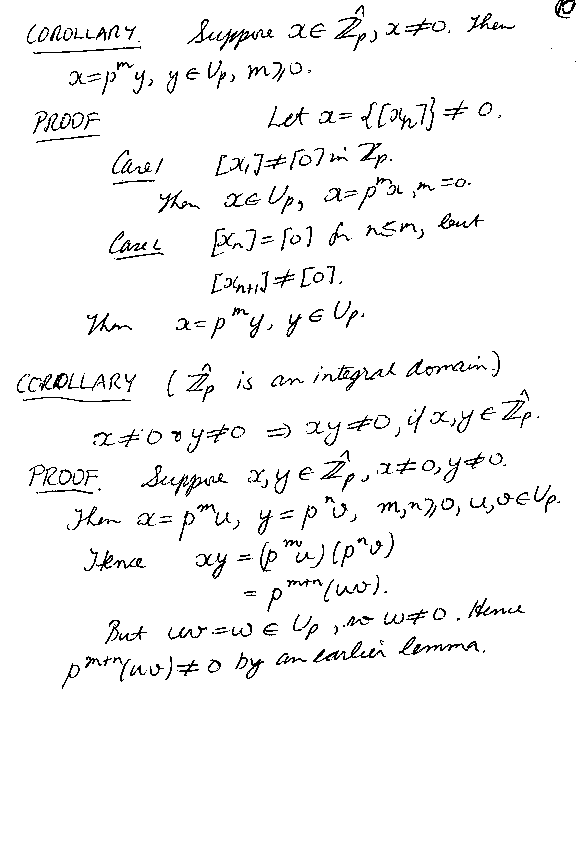 10
COROLLARY. Suppose x ∈ Ẑ_p, x ≠ 0. Then
x = p^m y, y ∈ U_p, m ⩾ 0.
PROOF Let x = {[x_n]} ≠ 0.
Case 1 [x_1] ≠ [0] in Z_p.
Then x ∈ U_p, x = p^m x, m = 0.
Case 2 [x_n] = [0] for n ≤ m, but
[x_{n+1}] ≠ [0].
Then x = p^m y, y ∈ U_p.
COROLLARY (Ẑ_p is an integral domain.)
x ≠ 0 or y ≠ 0 ⇒ xy ≠ 0, if x, y ∈ Ẑ_p.
PROOF. Suppose x, y ∈ Ẑ_p, x ≠ 0, y ≠ 0.
Then x = p^m u, y = p^n v, m, n ⩾ 0, u, v ∈ U_p.
Hence xy = (p^m u)(p^n v)
= p^{m+n}(uv).
But uv = w ∈ U_p, so w ≠ 0. Hence
p^{m+n}(uv) ≠ 0 by an earlier lemma.